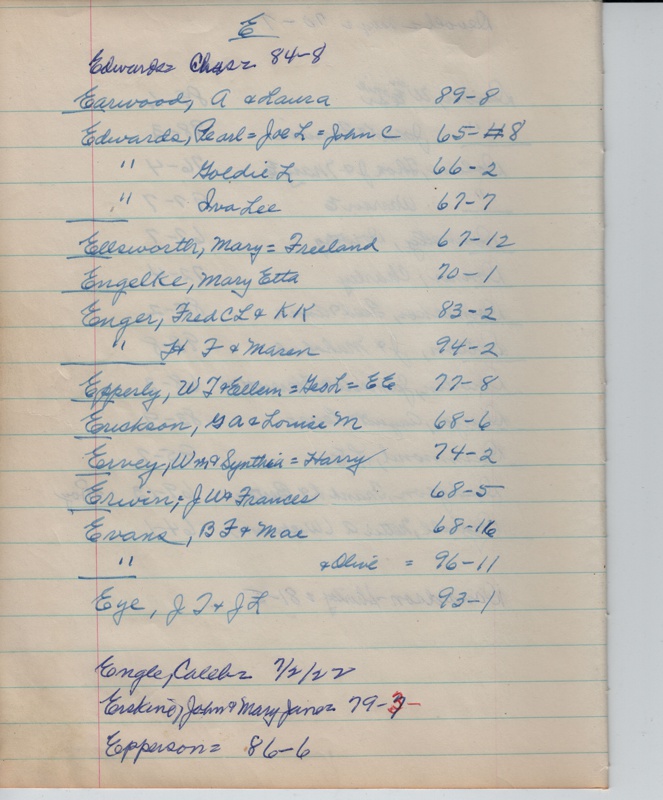 E
Edwards= Chas= 84-8
Earwood, A & Laura 89-8
Edwards, Pearl = Joe L = John C 65-8
" Goldie L 66-2
" Iva Lee 67-7
Ellsworth, Mary = Freeland 67-12
Engelke, Mary Etta 70-1
Enger, Fred C L & K K 83-2
" H F & Maren 94-2
Epperly, W T & Ellen = Geo L = E E 77-8
Erickson, G A & Louise M 68-6
Ervey, Wm & Synthia = Harry 74-2
Erwin, J W & Frances 68-5
Evans, B F & Mae 68-16
" & Olive = 96-11
Eye, J T & J L 93-1
Engle, Caleb= 7/2/22
Erskine, John & Mary Jane= 79-3
Epperson= 86-6